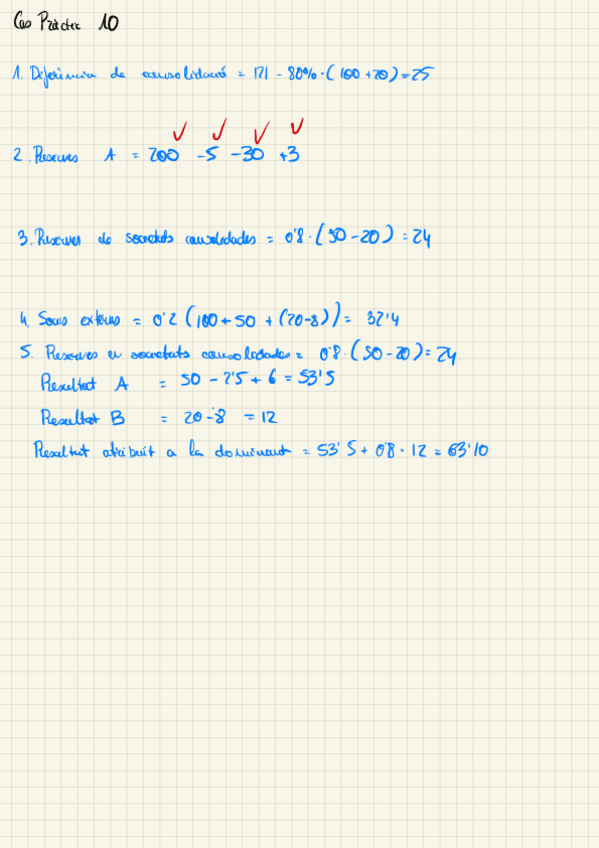 Cas Pràctic 10
1. Diferència de consolidació = 121 - 80% · (100 + 20) = 25
2. Reserves A = 200 - 5 - 30 + 3
3. Reserves de societats consolidades = 0'8 · (50 - 20) = 24
4. Socis externs = 0'2 (100 + 50 + (20-8)) = 32'4
5. Reserves en societats consolidades = 0'8 · (50 - 20) = 24
Resultat A = 50 - 2'5 + 6 = 53'5
Resultat B = 20 - 8 = 12
Resultat atribuït a la dominant = 53'5 + 0'8 · 12 = 63'10